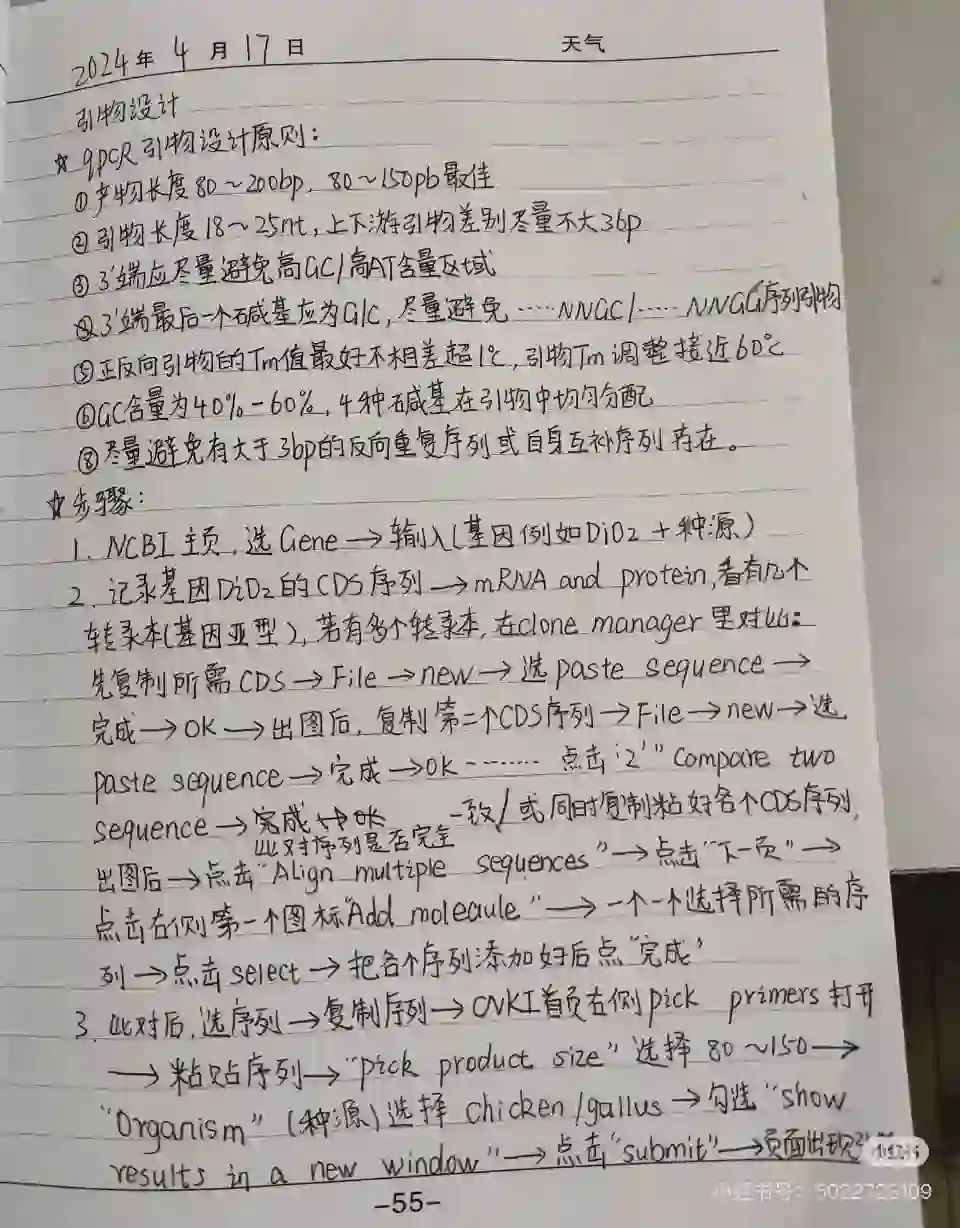 2024年 4 月 17 日 天气
引物设计
☆ qPCR 引物设计原则：
①产物长度80～200bp, 80～150pb最佳
②引物长度18～25nt, 上下游引物差别尽量不大3bp
③3'端应尽量避免高GC/高AT含量区域
④3'端最后一个碱基应为G/C, 尽量避免……NNGC/……NNGG序列引物
⑤正反向引物的Tm值最好不相差超1℃, 引物Tm调整接近60℃
⑥GC含量为40%-60%, 4种碱基在引物中均匀分配
⑧尽量避免有大于3bp的反向重复序列或自身互补序列存在。
☆步骤：
1. NCBI 主页, 选Gene→输入(基因例如DiO2+种源)
2. 记录基因DiO2的CDS序列→mRNA and protein, 看有几个
转录本(基因亚型), 若有多个转录本, 在clone manager里对比:
先复制所需CDS→File→new→选paste sequence→
完成→OK→出图后, 复制第二个CDS序列→File→new→选
paste sequence→完成→OK……… 点击'2'"Compare two
sequence→完成→OK 一致/或同时复制粘好各个CDS序列,
比对序列是否完全
出图后→点击"Align multiple sequences"→点击"下一页"→
点击右侧第一个图标"Add molecule"→一个一个选择所需的序
列→点击select→把各个序列添加好后点"完成'
3. 比对后, 选序列→复制序列→CNKI首页右侧pick primers打开
→粘贴序列→"pick product size"选择80～150→
"Organism"(种源)选择chicken/gallus→勾选"show
results in a new window"→点击"submit"→页面出现
-55-
小红书
小红书号: 5022723109